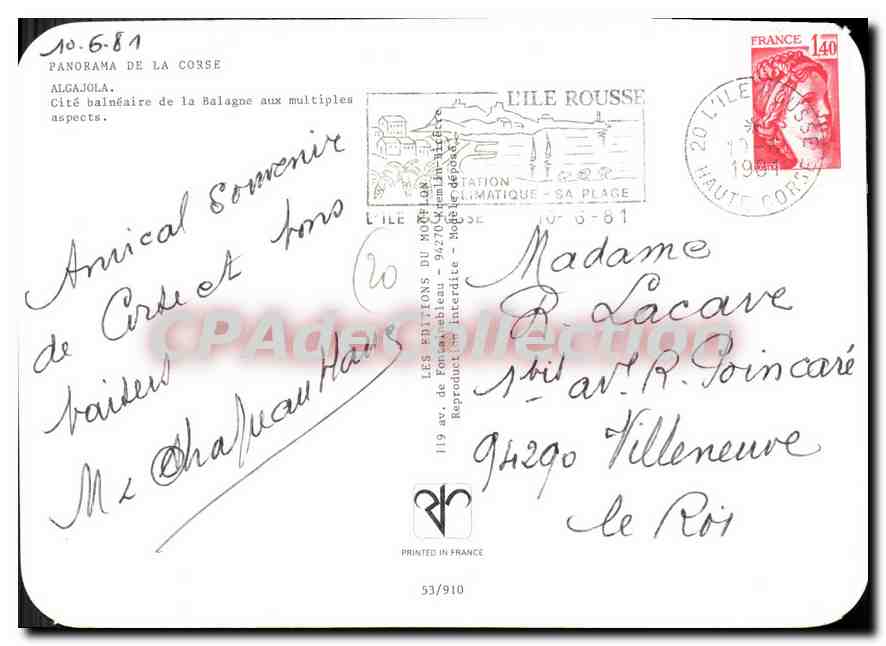 10.6.81
PANORAMA DE LA CORSE
ALGAJOLA.
Cité balnéaire de la Balagne aux multiples
aspects.
Amical souvenir
de Corse et bons
baisers
M
LES EDITIONS DU MOUFLON
119 av. de Fontainebleau - 94270 Kremlin-Bicêtre
Reproduction interdite - Modèle déposé
20
PRINTED IN FRANCE
53/910
FRANCE 1,40
L'ILE ROUSSE
STATION
CLIMATIQUE - SA PLAGE
L'ILE ROUSSE 10- 6-81
20 L'ILE ROUSSE
1981
HAUTE CORSE
Madame
R. Lacave
1bis av. R. Poincaré
94290 Villeneuve
le Roi
CPAdeCollection